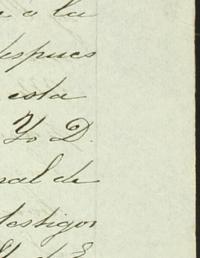 e a la
despues
esta
Yo D.
nal de
testigos